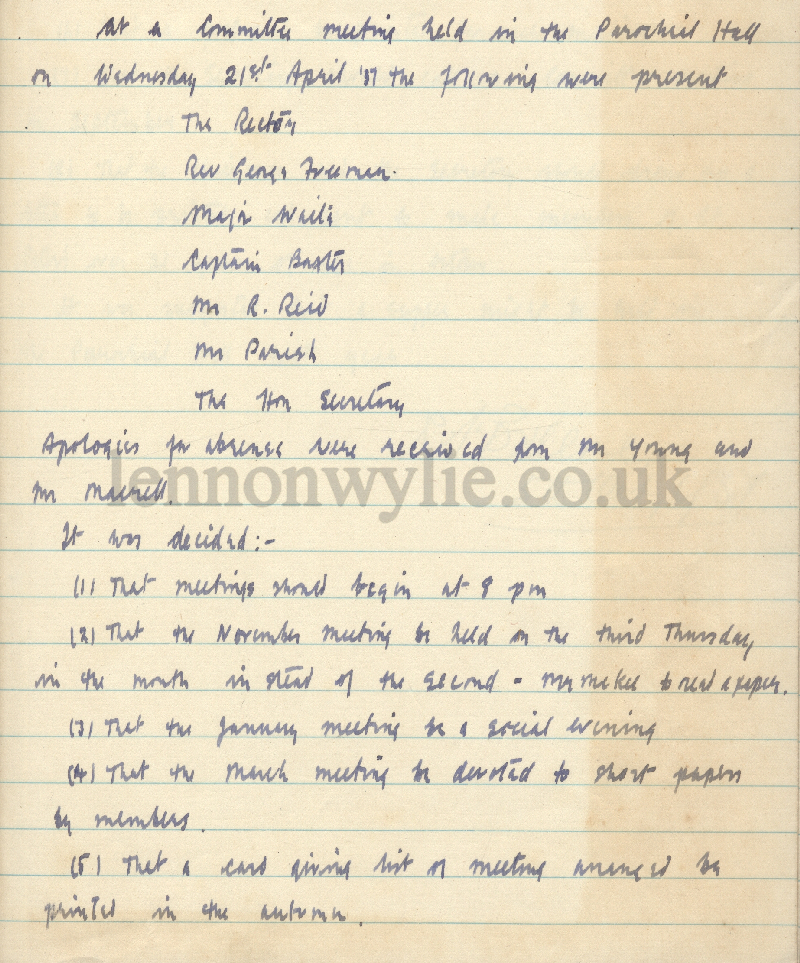 At a Committee meeting held in the Parochial Hall
on Wednesday 21st April '37 the following were present
The Rector
Rev George Freeman.
Major Waite
Captain Baxter
Mr R. Reid
Mr Parish
The Hon Secretary
Apologies for absence were received from Mr Young and
lennonwylie.co.uk
Mr
It was decided:-
(1) That meetings should begin at 8 pm
(2) That the November meeting be held on the third Thursday
in the month in stead of the second - to read a paper.
(3) That the January meeting be a social evening
(4) That the March meeting be devoted to short papers
by members.
(5) That a card giving list of meeting arranged be
printed in the autumn.